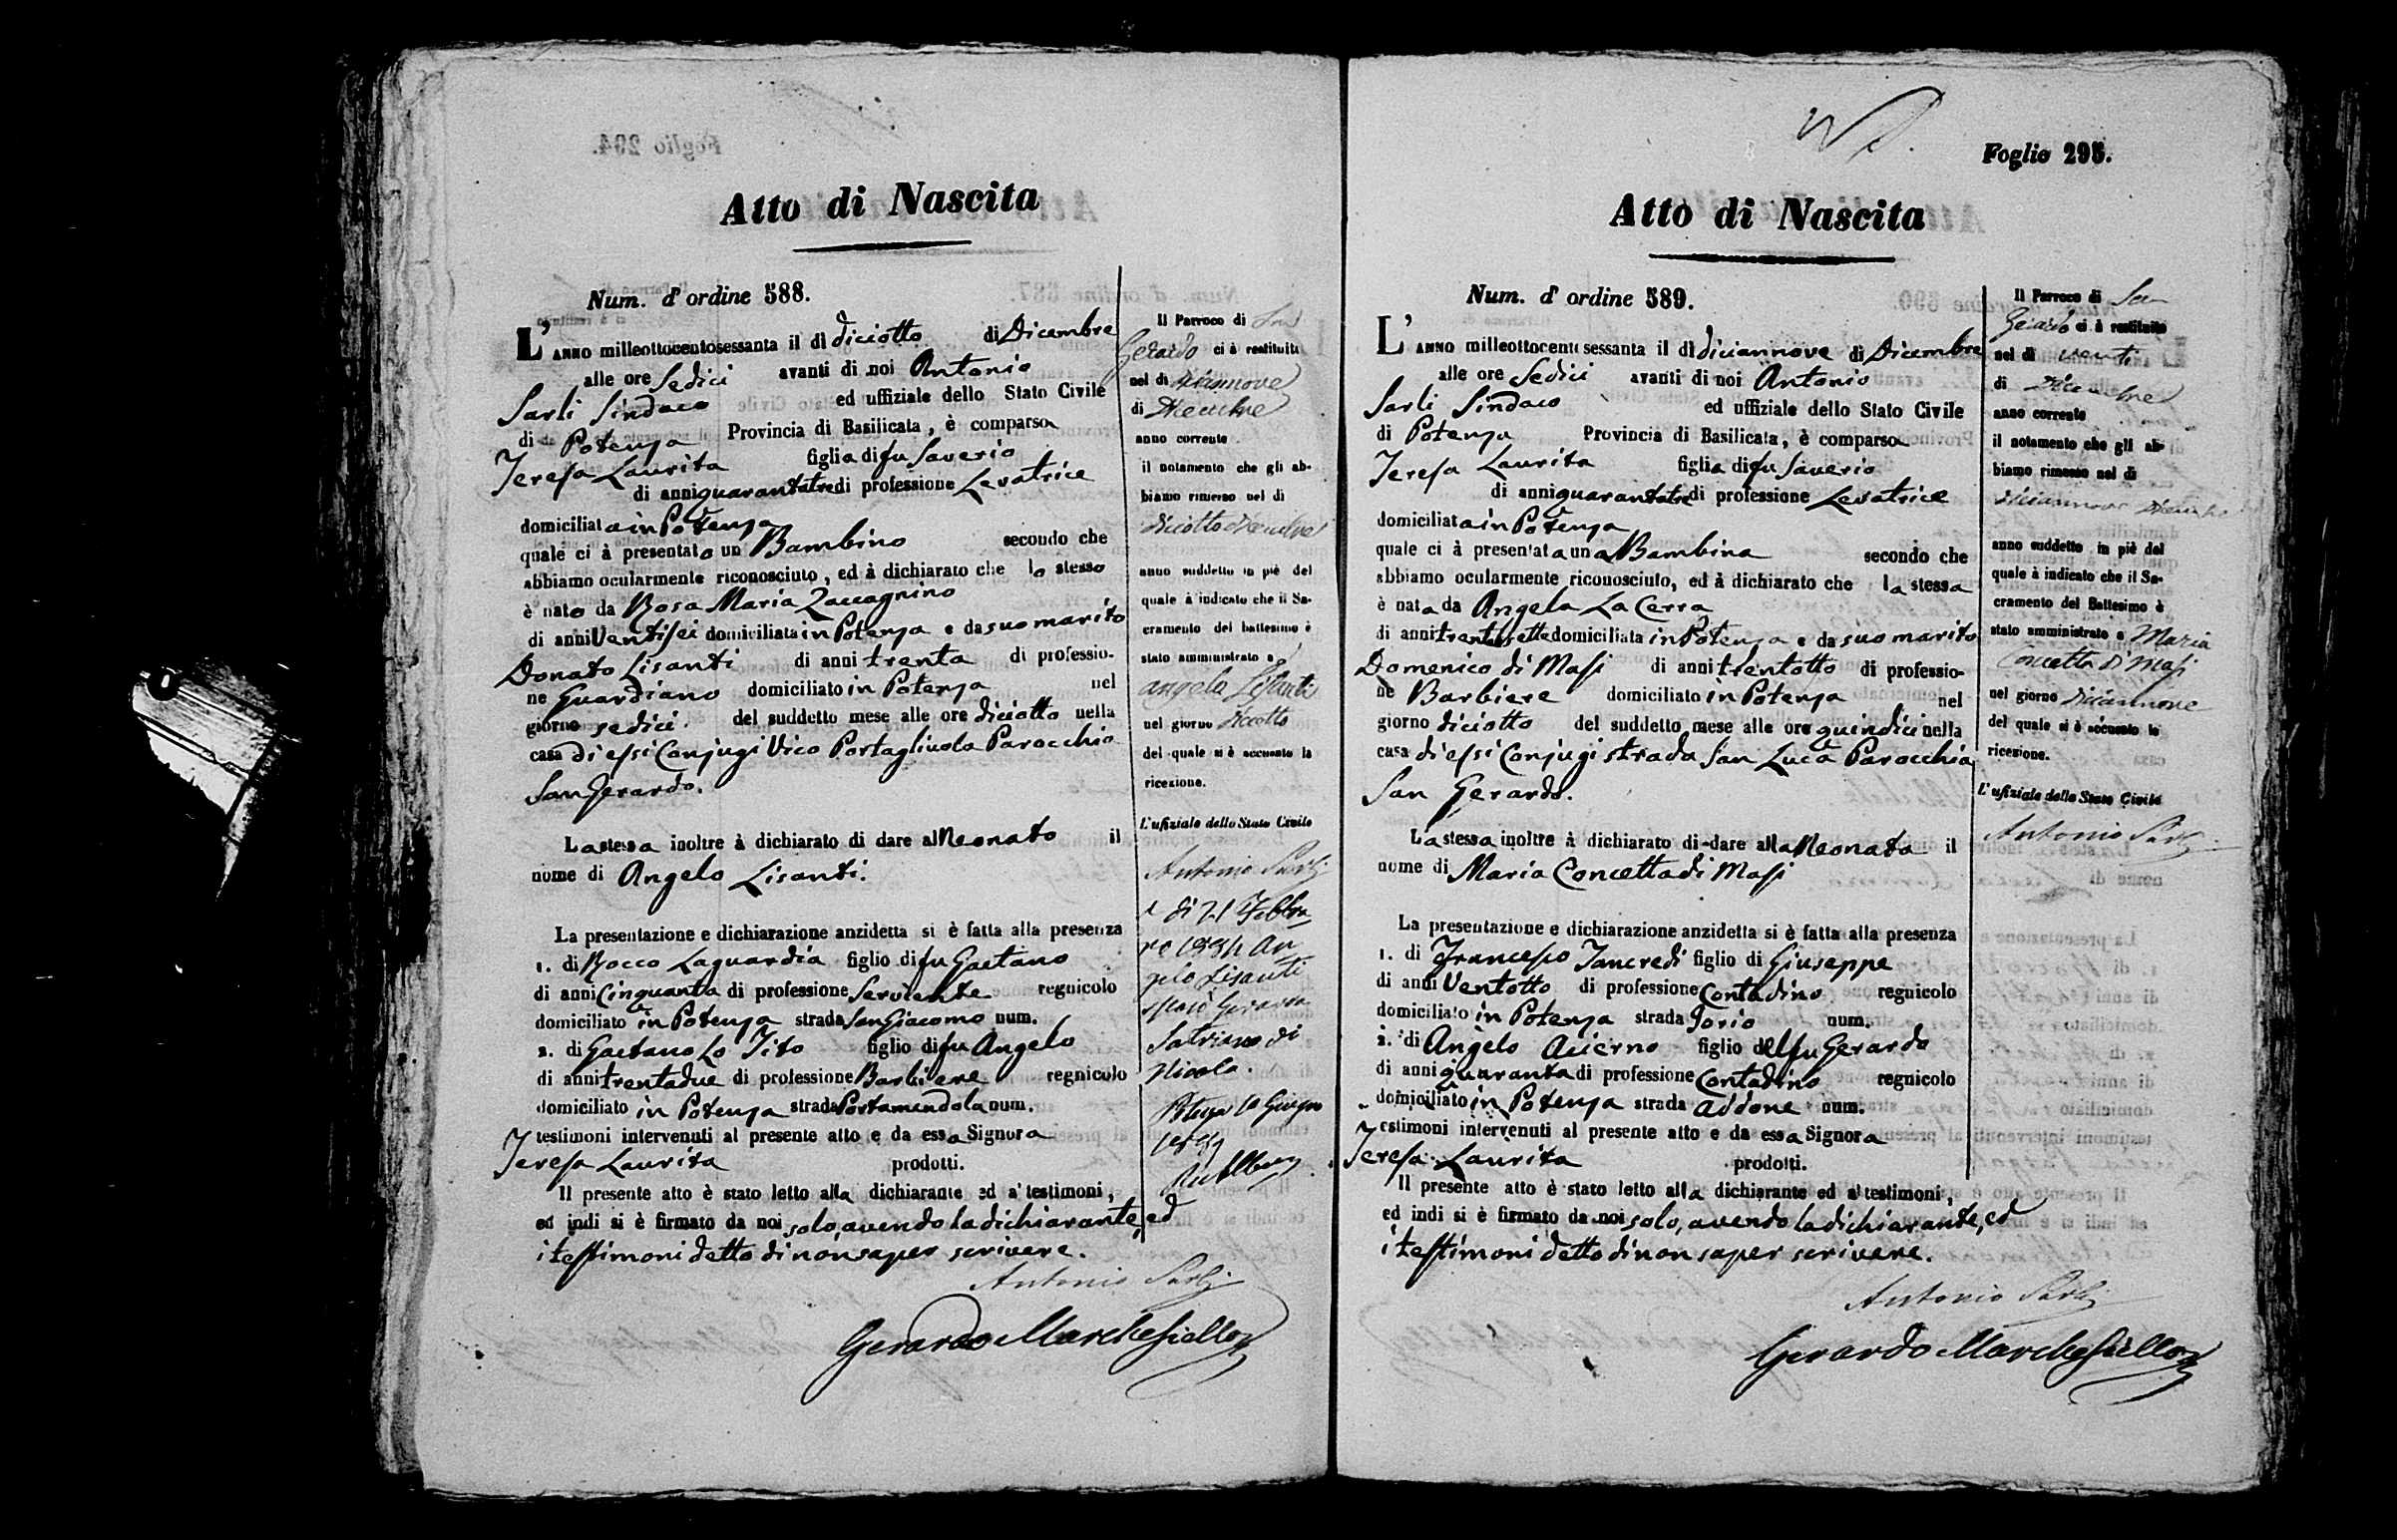 Atto di Nascita
Num. d' ordine 588.
L' ANNO milleottocentosessanta il dì diciotto di Dicembre
alle ore Sedici avanti di noi Antonio
Sarli Sindaco ed uffiziale dello Stato Civile
di Potenza Provincia di Basilicata, è comparsa
Teresa Laurita figlia di fu Saverio
di anni quarantatre di professione Levatrice
domiciliata in Potenza
quale ci à presentato un Bambino secondo che
abbiamo ocularmente riconosciuto, ed à dichiarato che lo stesso
è nato da Rosa Maria Zaccagnino
di anni Ventisei domiciliata in Potenza e da suo marito
Donato Lisanti di anni trenta di professio-
ne Guardiano domiciliato in Potenza nel
giorno sedici del suddetto mese alle ore diciotto nella
casa di essi Conjugi Vico Portagliuola Parocchia
San Gerardo.
La stessa inoltre à dichiarato di dare al Neonato il
nome di Angelo Lisanti.
La presentazione e dichiarazione anzidetta si è fatta alla presenza
1. di Rocco Laguardia figlio di fu Gaetano
di anni Cinquanta di professione Serviente regnicolo
domiciliato in Potenza strada San Giacomo num.
2. di Gaetano Lo Tito figlio di fu Angelo
di anni trentadue di professione Barbiere regnicolo
domiciliato in Potenza strada Portamendola num.
testimoni intervenuti al presente atto e da essa Signora
Teresa Laurita prodotti.
Il presente atto è stato letto alla dichiarante ed a' testimoni,
ed indi si è firmato da noi solo, avendo la dichiarante, ed
i testimoni detto di non saper scrivere.
Antonio Sarli
Gerardo Marchesiello
Il Parroco di San
Gerardo ci à restituito
nel dì diciannove
di Dicembre
anno corrente
il notamento che gli ab-
biamo rimesso nel dì
diciotto Dicembre
anno suddetto in piè del
quale à indicato che il Sa-
cramento del battesimo è
stato amministrato a
Angelo Lisanti
nel giorno diciotto
del quale si è accusato la
ricezione.
L'ufiziale dello Stato Civile
Antonio Sarli
di 21 Febbra
An
gelo Lisanti
sposò
Satriano di
Nicola.
Potenza Giugno
Foglio 295.
Atto di Nascita
Num. d' ordine 589.
L' ANNO milleottocento sessanta il dì diciannove di Dicembre
alle ore Sedici avanti di noi Antonio
Sarli Sindaco ed uffiziale dello Stato Civile
di Potenza Provincia di Basilicata, è comparsa
Teresa Laurita figlia di fu Saverio
di anni quarantatre di professione Levatrice
domiciliata in Potenza
quale ci à presentata una Bambina secondo che
abbiamo ocularmente riconosciuto, ed à dichiarato che la stessa
è nata da Angela La Cerra
di anni trentasette domiciliata in Potenza e da suo marito
Domenico di Masi di anni trentotto di professio-
ne Barbiere domiciliato in Potenza nel
giorno diciotto del suddetto mese alle ore quindici nella
casa di essi Conjugi strada San Luca Parocchia
San Gerardo.
La stessa inoltre à dichiarato di dare alla Neonata il
nome di Maria Concetta di Masi
La presentazione e dichiarazione anzidetta si è fatta alla presenza
1. di Francesco Tancredi figlio di Giuseppe
di anni Ventotto di professione Contadino regnicolo
domiciliato in Potenza strada Torio num.
2. di Angelo Acierno figlio del fu Gerardo
di anni quaranta di professione Contadino regnicolo
domiciliato in Potenza strada Addone num.
testimoni intervenuti al presente atto e da essa Signora
Teresa Laurita prodotti.
Il presente atto è stato letto alla dichiarante ed a' testimoni,
ed indi si è firmato da noi solo, avendo la dichiarante, ed
i testimoni detto di non saper scrivere.
Antonio Sarli
Gerardo Marchesiello
Il Parroco di San
Gerardo ci à restituito
nel dì venti
di Dicembre
anno corrente
il notamento che gli ab-
biamo rimesso nel dì
diciannove Dicembre
anno suddetto in piè del
quale à indicato che il Sa-
cramento del Battesimo è
stato amministrato a Maria
Concetta di Masi
nel giorno diciannove
del quale si è accusato la
ricezione.
L'ufiziale dello Stato Civile
Antonio Sarli